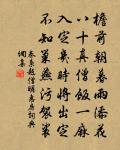 檐前朝暮雨添花
八十真僧飯一麻
入定幾時將出定
不知巢燕污袈裟
秦系題僧明惠房詞典
網集